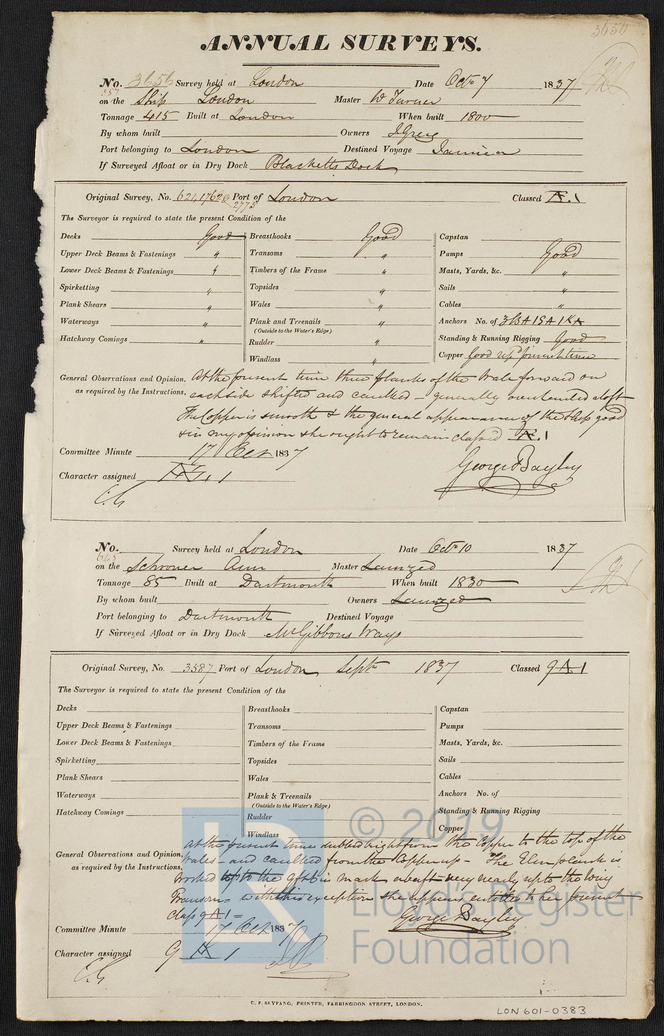 3656
ANNUAL SURVEYS.
No. 3656 Survey held at London Date Octr 7 1837
on the Ship London Master W Turner
Tonnage 415 Built at London When built 1800
By whom built Owners
Port belonging to London Destined Voyage Jamaica
If Surveyed Afloat or in Dry Dock Blacketts Dock
Original Survey, No. 621, 1762 2773 Port of London Classed Æ.1
The Surveyor is required to state the present Condition of the
Decks Good Breasthooks Good Capstan
Upper Deck Beams & Fastenings " Transoms " Pumps Good
Lower Deck Beams & Fastenings " Timbers of the Frame " Masts, Yards, &c. "
Spirketting " Topsides " Sails "
Plank Shears " Wales " Cables "
Waterways " Plank and Treenails " Anchors No. of 3BA 1SA 1KA
(Outside to the Water's Edge)
Hatchway Comings " Rudder " Standing & Running Rigging Good
Windlass " Copper Good up present time
General Observations and Opinion, At the present time three planks of the Wale forward on
as required by the Instructions, each side shifted and caulked – generally overhauled aloft
The Copper is smooth & the general appearance of the ship good
& in my opinion she ought to remain classed Æ.1
Committee Minute 17 Octr 1837
George Bayley
Character assigned Æ 1
No. 615 Survey held at London Date Octr 10 1837
on the Schooner Ann Master
Tonnage 85 Built at Dartmouth When built 1830
By whom built Owners
Port belonging to Dartmouth Destined Voyage
If Surveyed Afloat or in Dry Dock McGibbons Ways
Original Survey, No. 3587 Port of London Septr 1837 Classed 9 A 1
The Surveyor is required to state the present Condition of the
Decks Breasthooks Capstan
Upper Deck Beams & Fastenings Transoms Pumps
Lower Deck Beams & Fastenings Timbers of the Frame Masts, Yards, &c.
Spirketting Topsides Sails
Plank Shears Wales Cables
Waterways Plank & Treenails Anchors No. of
(Outside to the Water's Edge)
Hatchway Comings Rudder Standing & Running Rigging
Windlass Copper
General Observations and Opinion, At the present time dubbed bright from the Copper to the top of the
as required by the Instructions, Wales – and caulked from the Copper up – The Elm plank is
worked up to the 9 ft 6 in mark abaft very nearly up to the Wing
Transom with this exception she appears entitled to her present
class 9 A 1 –
George Bayley
Committee Minute 17 Octr 1837
Character assigned 9 A 1
© 2019
Lloyd's Register
Foundation
PRINTER, FARRINGDON STREET, LONDON.
LON601-0383